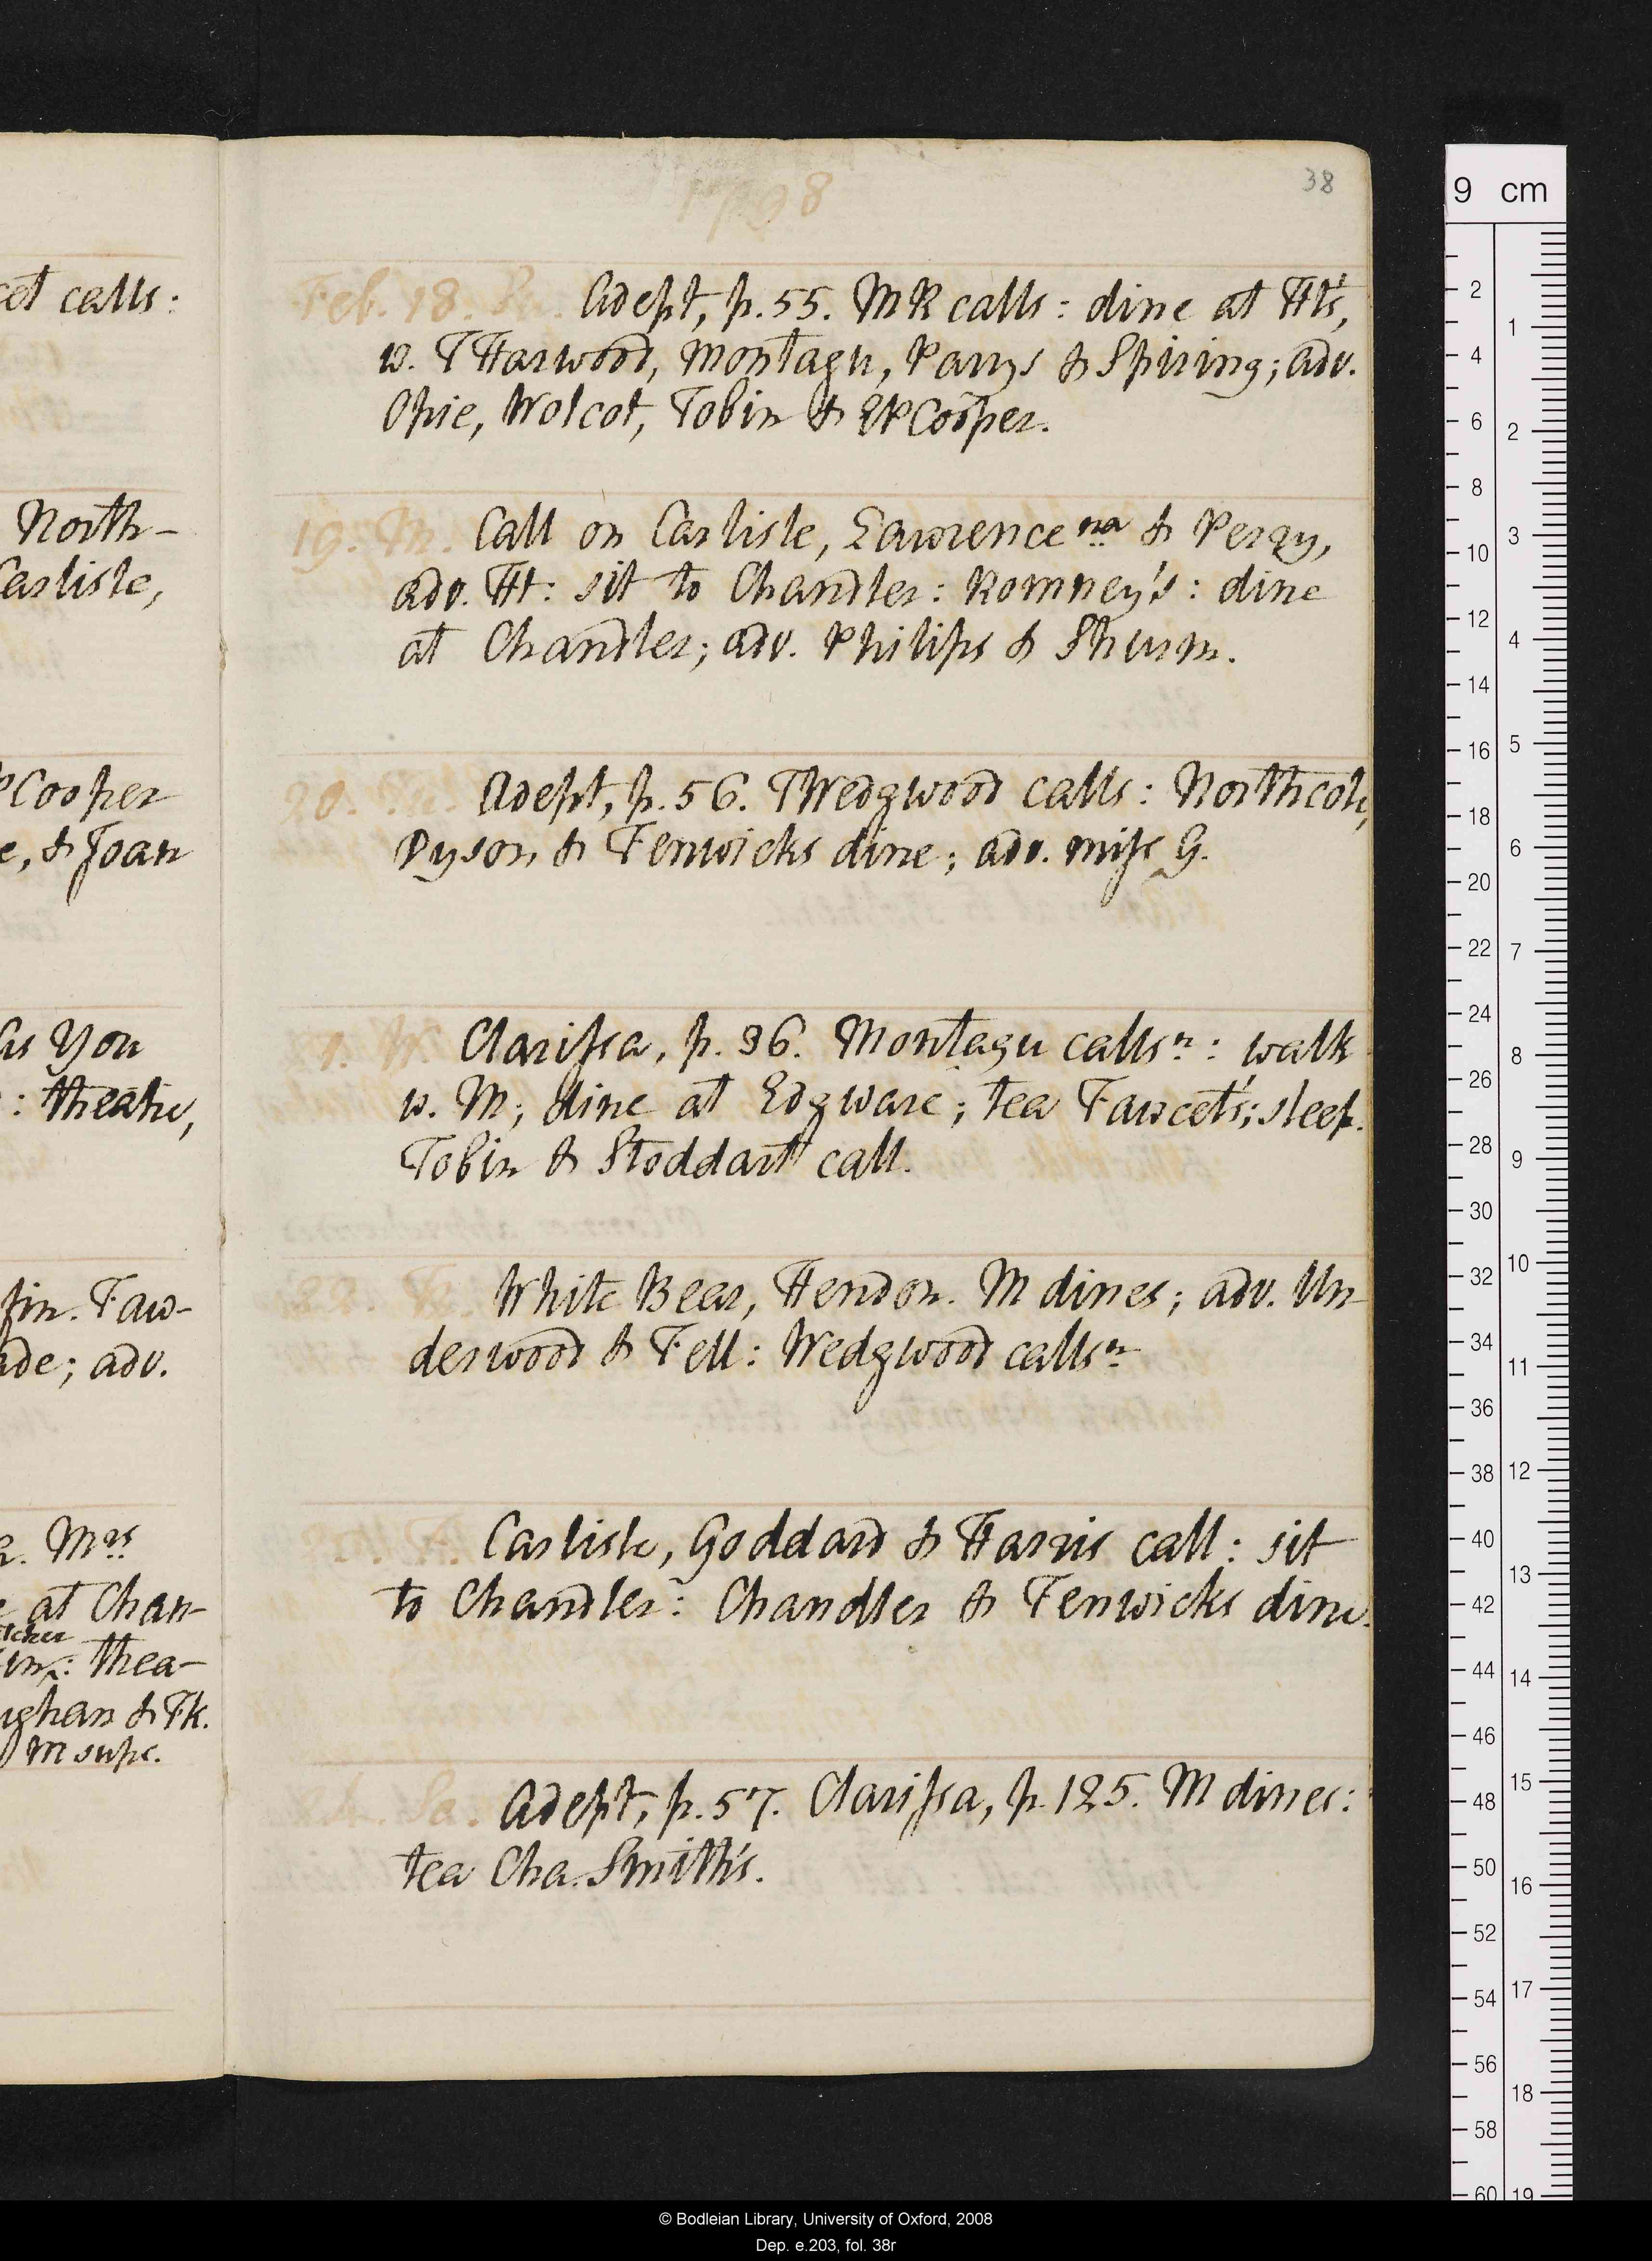 cet calls:
North-
Carlisle,
PCooper
e, & Joan
As You
: theatre,
fin. Faw-
ade; adv.
Mrs
at Chan-
: thea-
ughan & Fk.
M supe.
1798
38
Feb. 18. Su. Adept, p. 55. MR calls: dine at Ht's,
w. THarwood, Montagu, Parrys & Spiring; adv.
Opie, Wolcot, Tobin & EPCooper.
19. M. Call on Carlisle, Lawrence na & Perry,
adv. Ht: sit to Chandler: Romney's: dine
at Chandler; adv. Philips & Shurm.
20. Tu. Adept, p. 56. TWedgwood calls: Northcote,
Dyson & Fenwicks dine; adv. miss G.
1. W. Clarissa, p. 36. Montagu calls n: walk
w. M; dine at Edgware; tea Fawcet's; sleep.
Tobin & Stoddart call.
22. Th. White Bear, Hendon. M dines; adv. Un-
derwood & Fell: Wedgwood calls n
F. Carlisle, Goddard & Harris call: sit
to Chandler: Chandler & Fenwicks dine.
Sa. Adept, p. 57. Clarissa, p. 125. M dines:
tea Cha. Smith's.
9 cm
2
4
6
8
10
12
14
16
18
20
22
24
26
28
30
32
34
36
38
40
42
44
46
48
50
52
54
56
58
60
1
2
3
4
5
6
7
8
9
10
11
12
13
14
15
16
17
18
19
© Bodleian Library, University of Oxford, 2008
Dep. e.203, fol. 38r